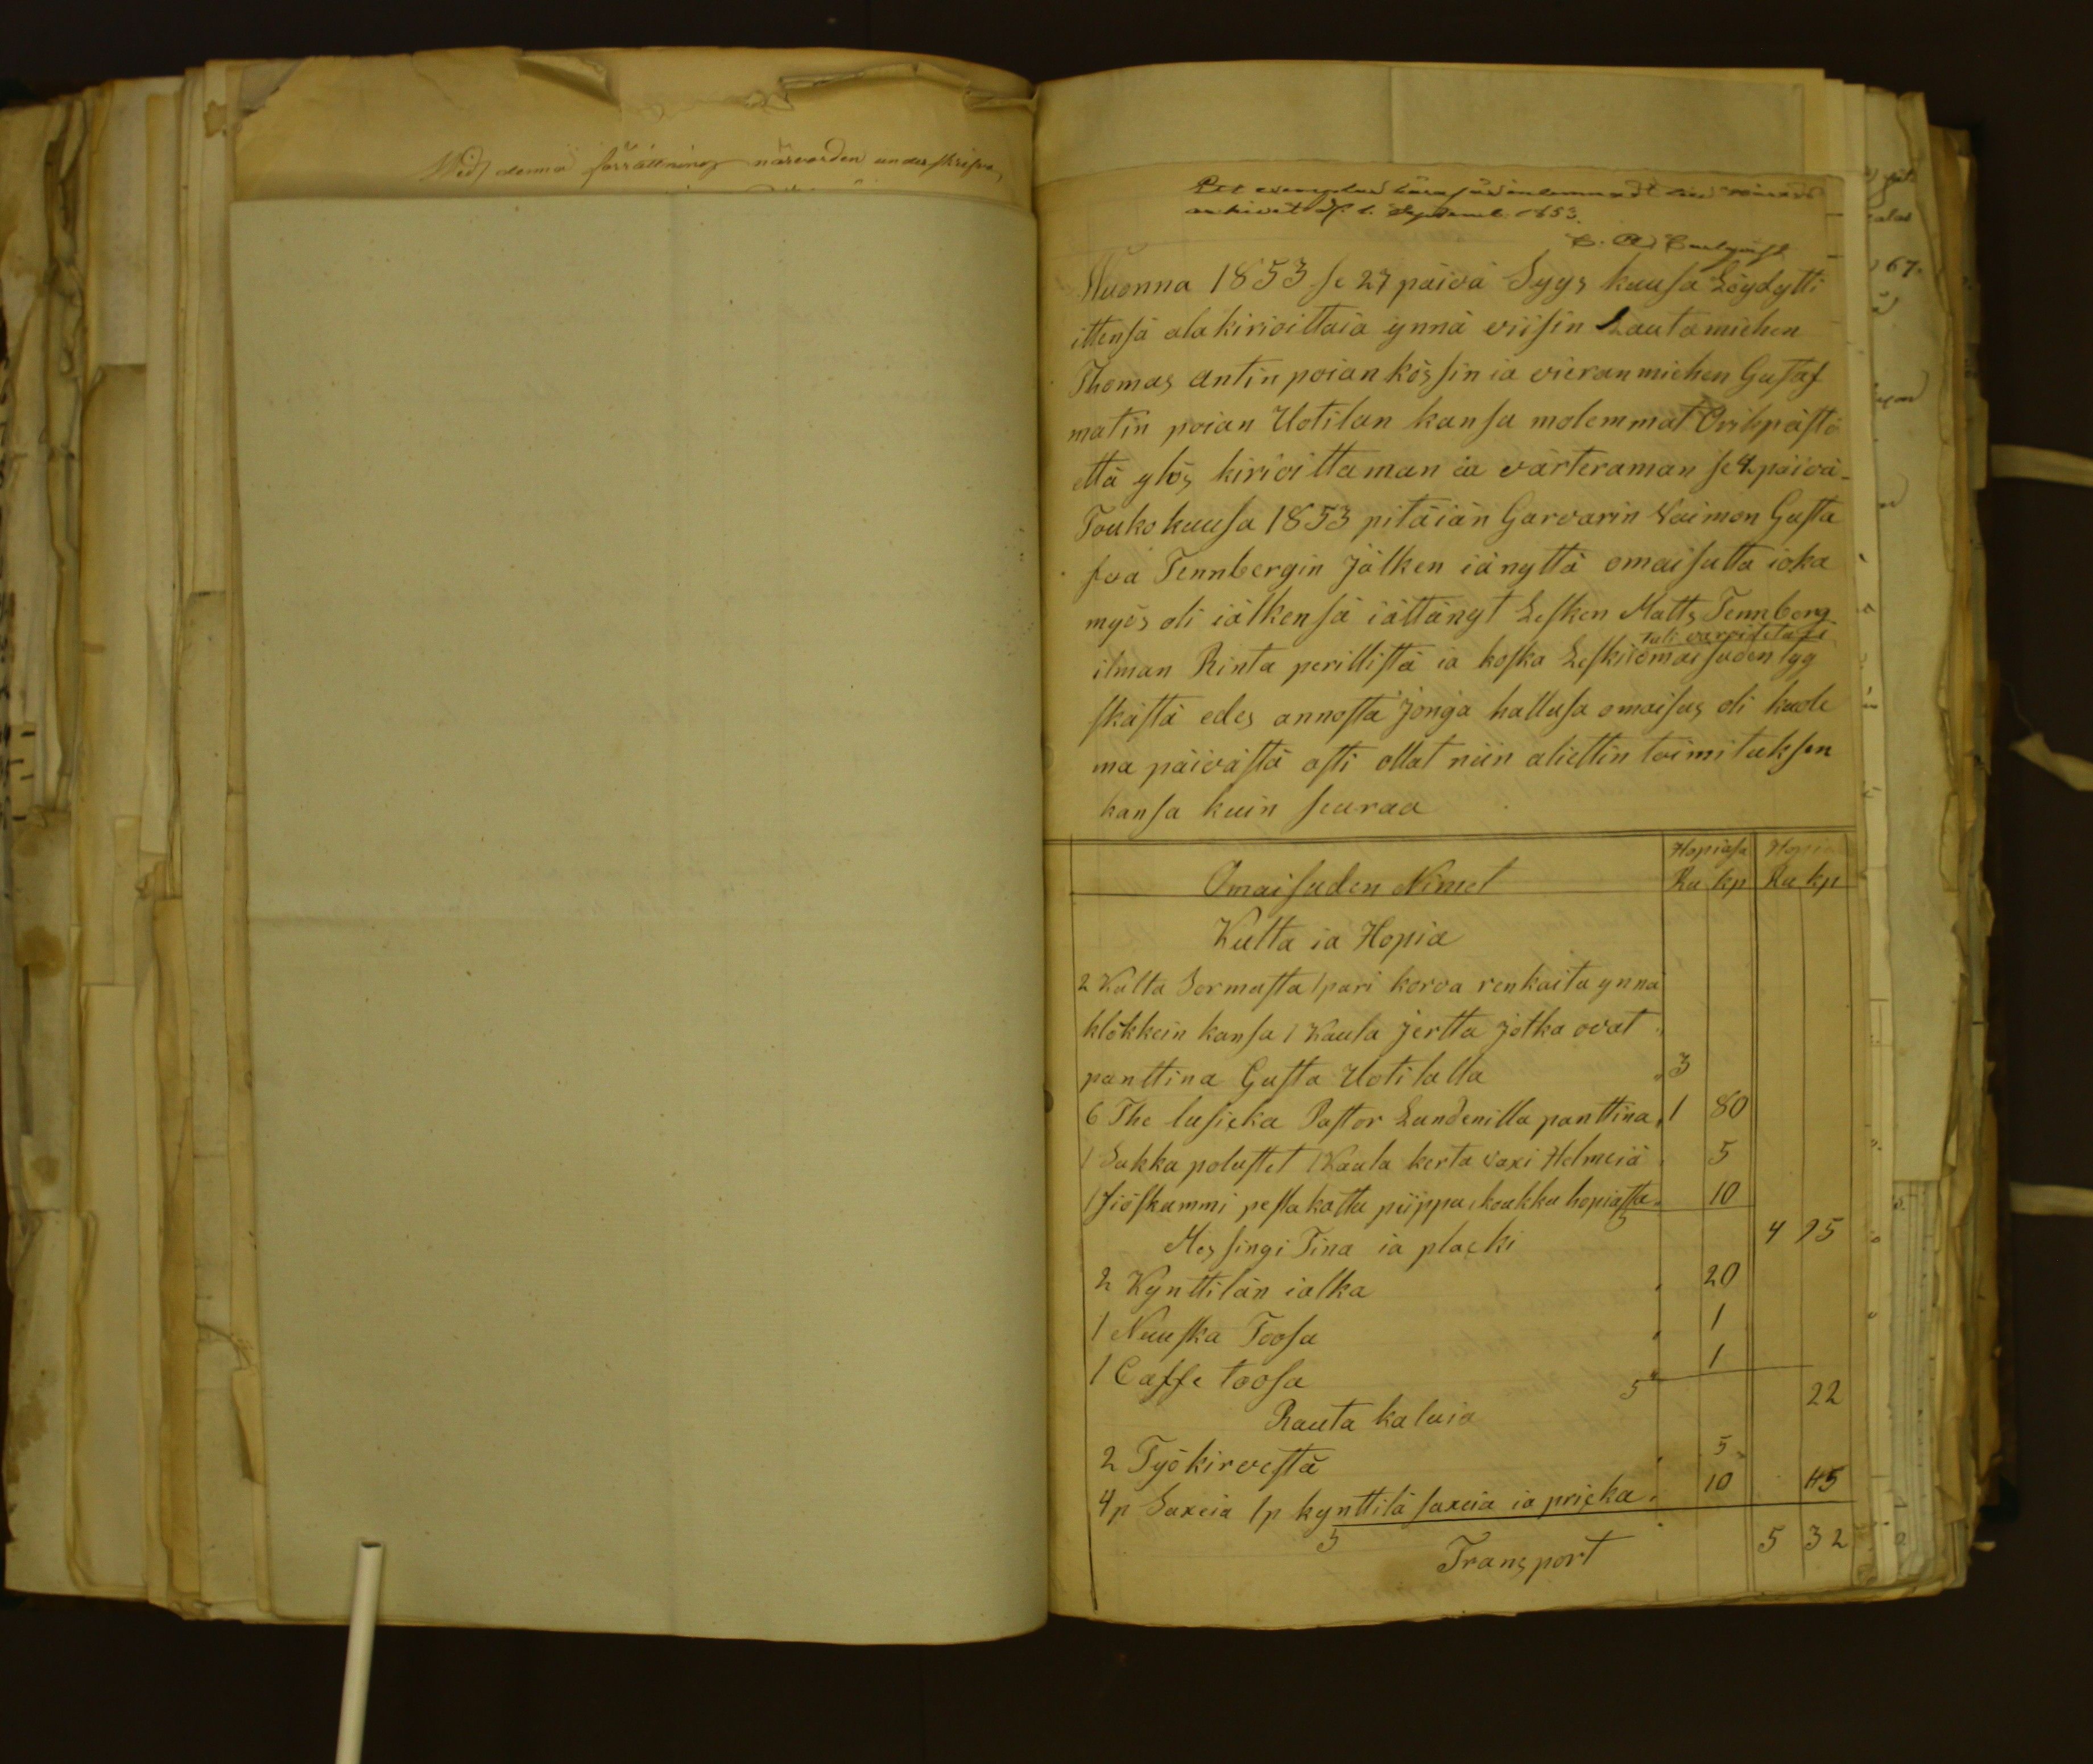 Wid denna förrättning närvarden underskrifva,
Ett exemplar
arkivet d. 1. Septemb. 1853.
Wuonna 1853 se 27 päivä Syys kuusa Löydytti
ittensä ala kirioittaia ynnä viisin Lautamiehen
Thomas Antin poian kössin ia vieranmiehen Gustaf
matin poian Uotilan kansa molemmat Orihpästö
että ylös kirioittaman ia värteraman se 4 päivä
Toukokuusa 1853 pitäiän Garvarin Vaimon Gusta
fva Tennbergin Jälken iänyttä omaisutta ioka
myös oli iälkensä iättänyt Lesken Matts Tennberg
ilman Rinta perillistä ia koska Leski omaisuden tyg
tuli varoitetuxi
skästä edes annosta Jonga hallusa omaisus oli kuole
ma päivästä asti ollat niin aliettin toimituksen
kansa kuin seuraa
Omaisuden Nimet Hopiasa Ru kp Hopia Ru kp
Kulta ia Hopia
2 Kulta Sormusta 1 pari korva renkaita ynnä
klökkein kansa 1 Kaula Jertta Jotka ovat
panttina Gusta Uotilalla 3
6 The lusicka Pastor Lundenilla panttina 1 80
1 Sukka polustet 1 Kaula kerta vaxi Helmeiä 5
1 Siöskummi pesta kattu piippu, koukku hopiasta 10
4 95
Messingi Tina ia placki
2 Kynttilän ialka 20
1 Nuuska Toosa 1
1 Caffe toosa 1
22
Rauta kaluia
2 Työkirvestä 5
4p Saxeia 1p kynttilä saxeia ia pricka 10 15
Transport 5 32